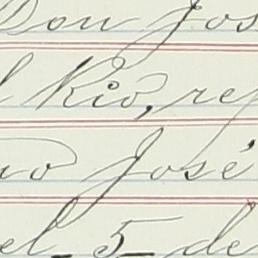 Don Jos
l Rio, rep
no José
el 5 de